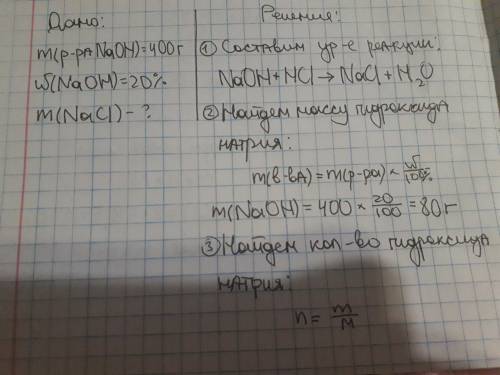 Дано:
m(р-ра NaOH)=400г
ω(NaOH)=20%
m(NaCl)-?
Решения:
① Составим ур-е реакции:
NaOH+HCl→NaCl+H₂O
② Найдем массу гидроксида
натрия:
m(в-ва)=m(р-ра)×ω/100%
m(NaOH)=400×20/100=80г
③ Найдем кол-во гидроксида
натрия:
n=m/M